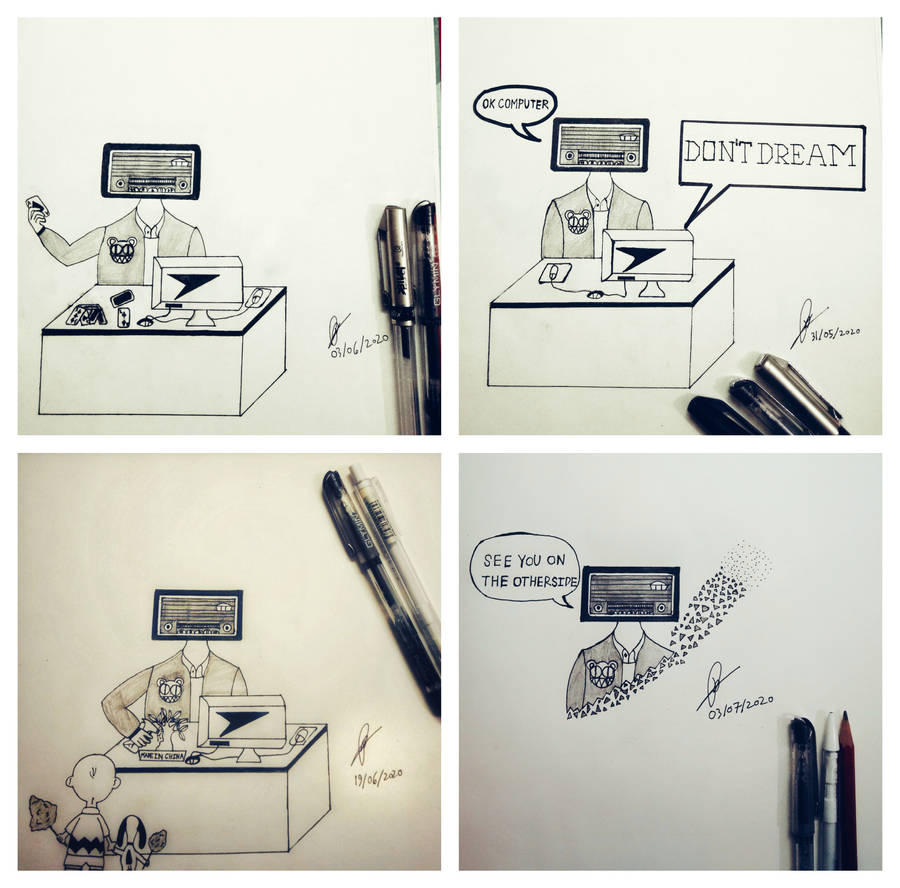 03/06/2020
GLYMIN
OK COMPUTER
DON'T DREAM
31/05/2020
MADE IN CHINA
19/06/2020
GLYMIN
SEE YOU ON
THE OTHERSIDE
03/07/2020